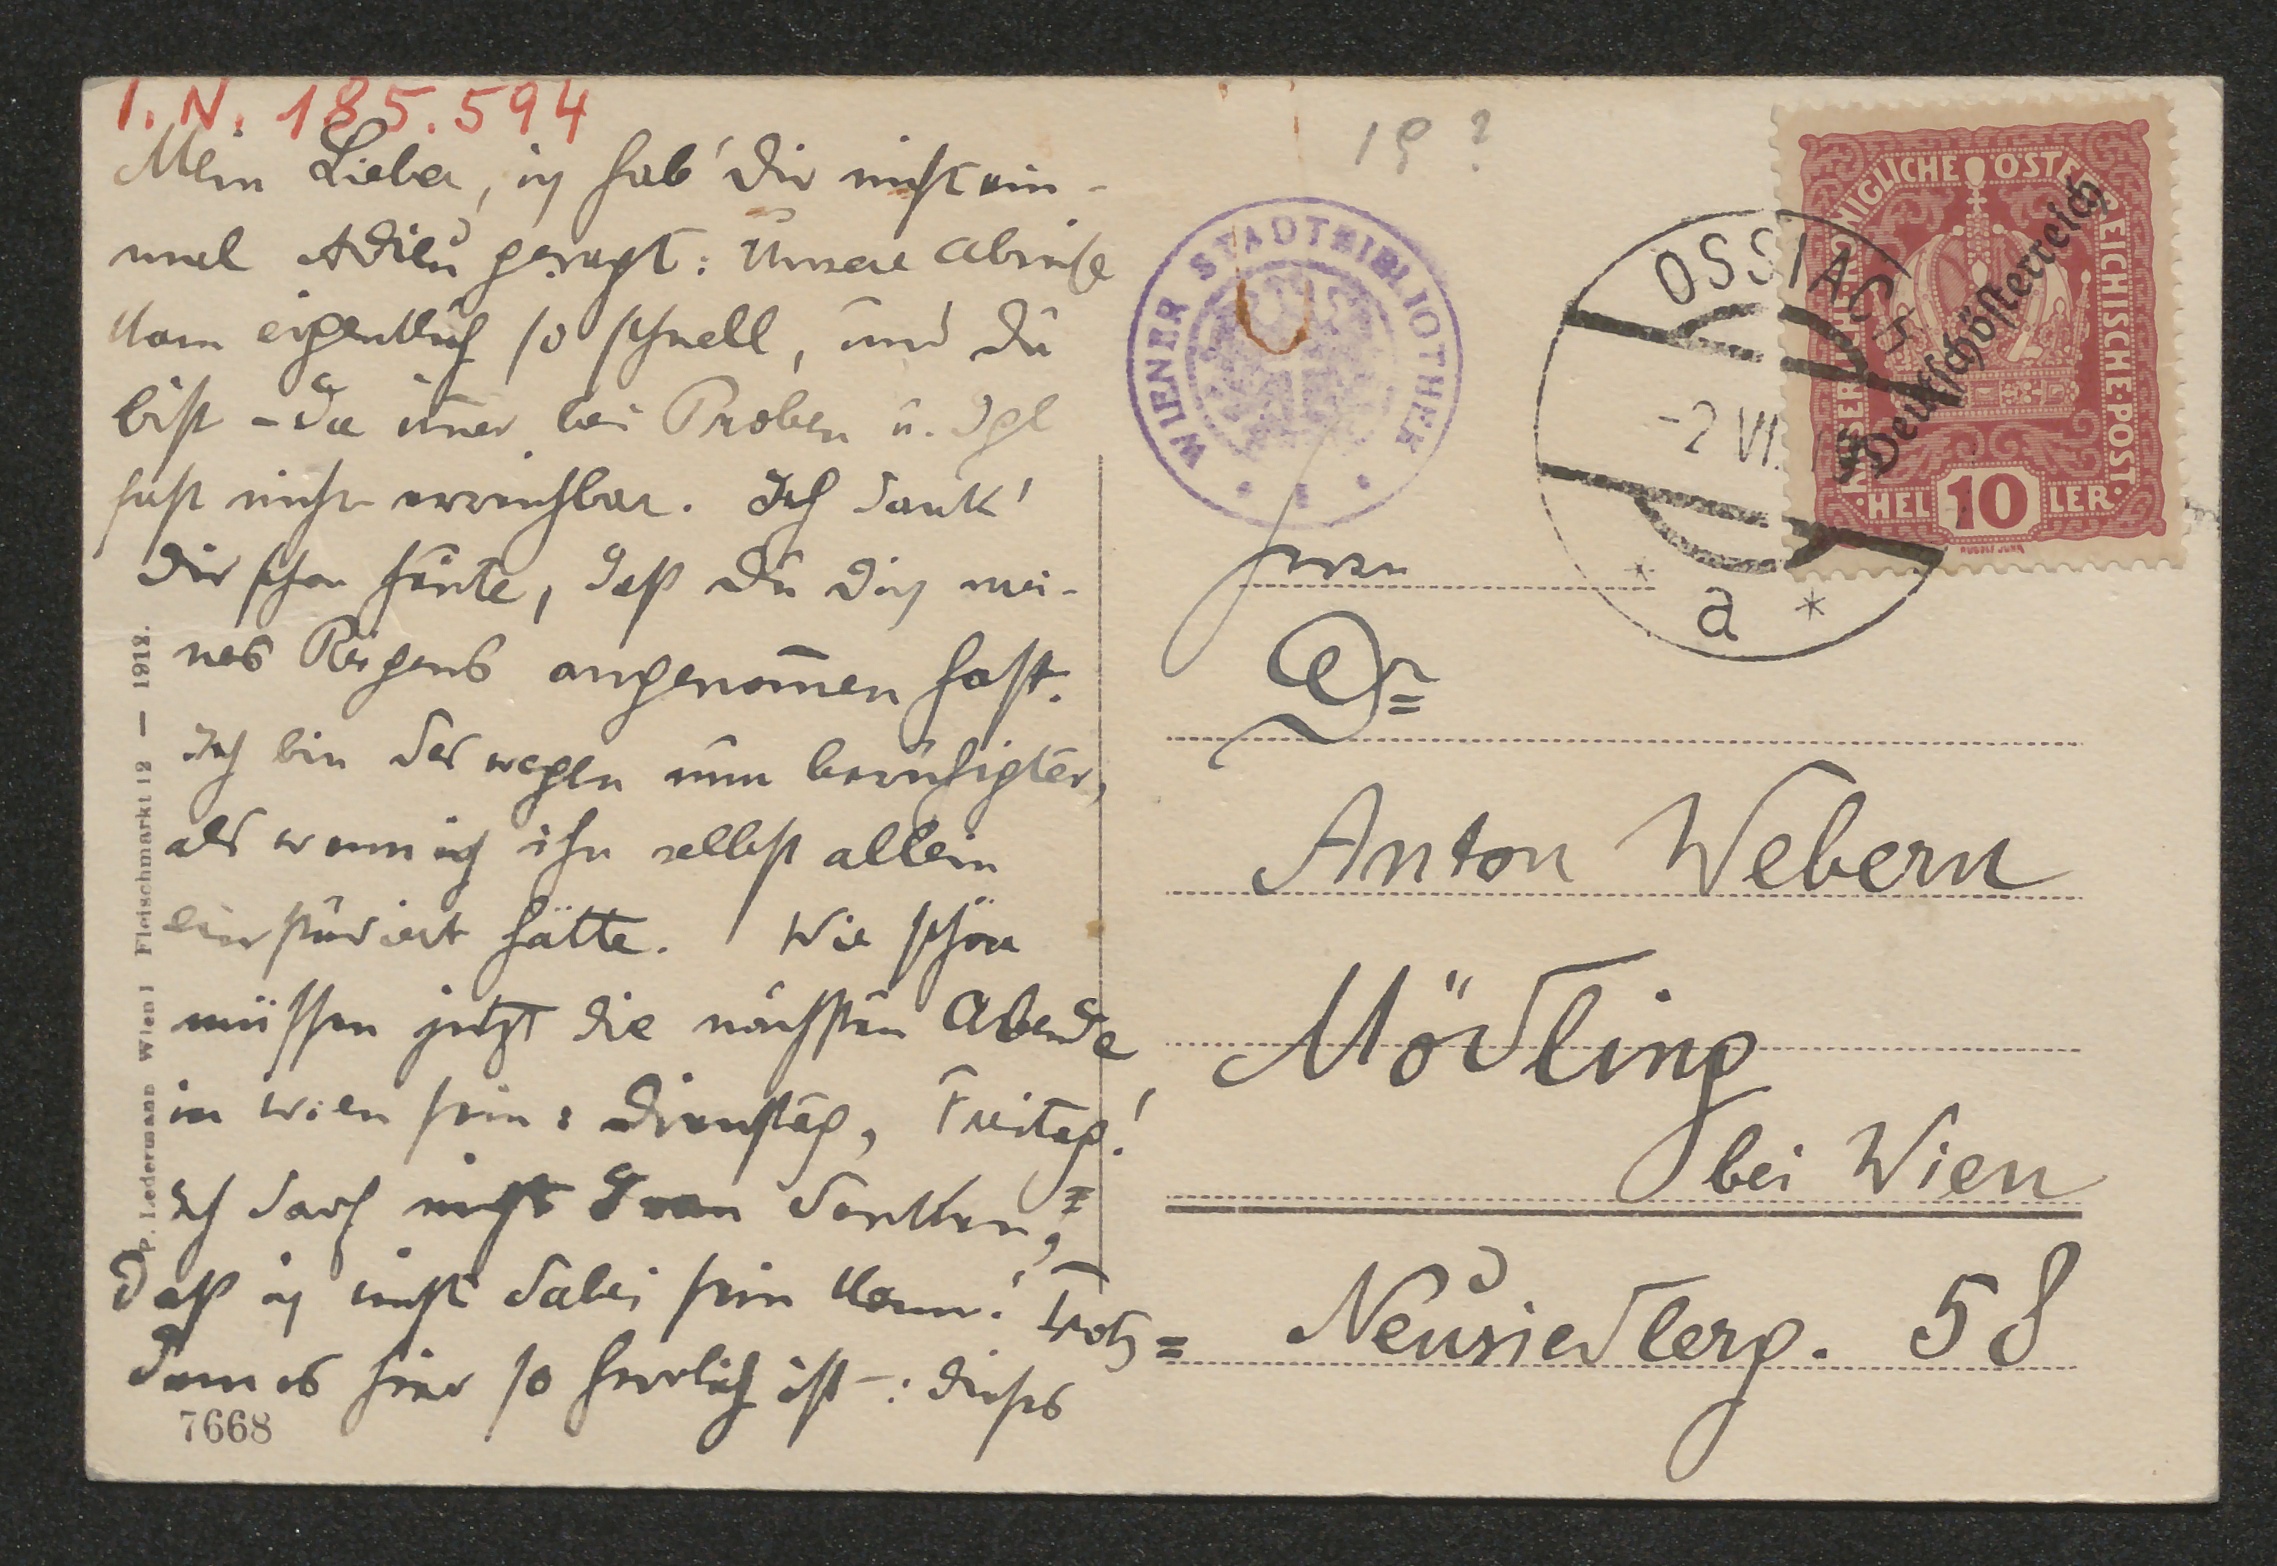 I. N. 185.594
Mein Lieber, ich hab' Dir nicht ein-
mal Adieu gesagt: Unsere Abreise
kam eigentlich so schnell, und Du
bist – da im̅er bei Proben u. dgl
fast nicht erreichbar. Ich dank'
Dir schon heute, daß Du Dich mei-
nes Reigens angenom̅en hast.
Ich bin deswegen nun beruhigter,
als wenn ich ihn selbst allein
einstudiert hätte. Wie schön
müssen jetzt die nächsten Abende
in Wien sein: Dienstag, Freitag!
Ich darf nicht dran denken,
daß ich nicht dabei sein kann! Trotz=
dem es hier so herrlich ist –: dieses
7668
P. Ledermann Wien I Fleischmarkt 12 — 1912.
19?
WIENER STADTBIBLIOTHEK
OSSIACH
-2 VI.
a
KAISERLICHE KÖNIGLICHE ÖSTERREICHISCHE·POST·
Deutschösterreich
HEL 10 LER
RUDOLF JUNK
Herrn
Dr
Anton Webern
Mödling
bei Wien
Neusiedlerg. 58